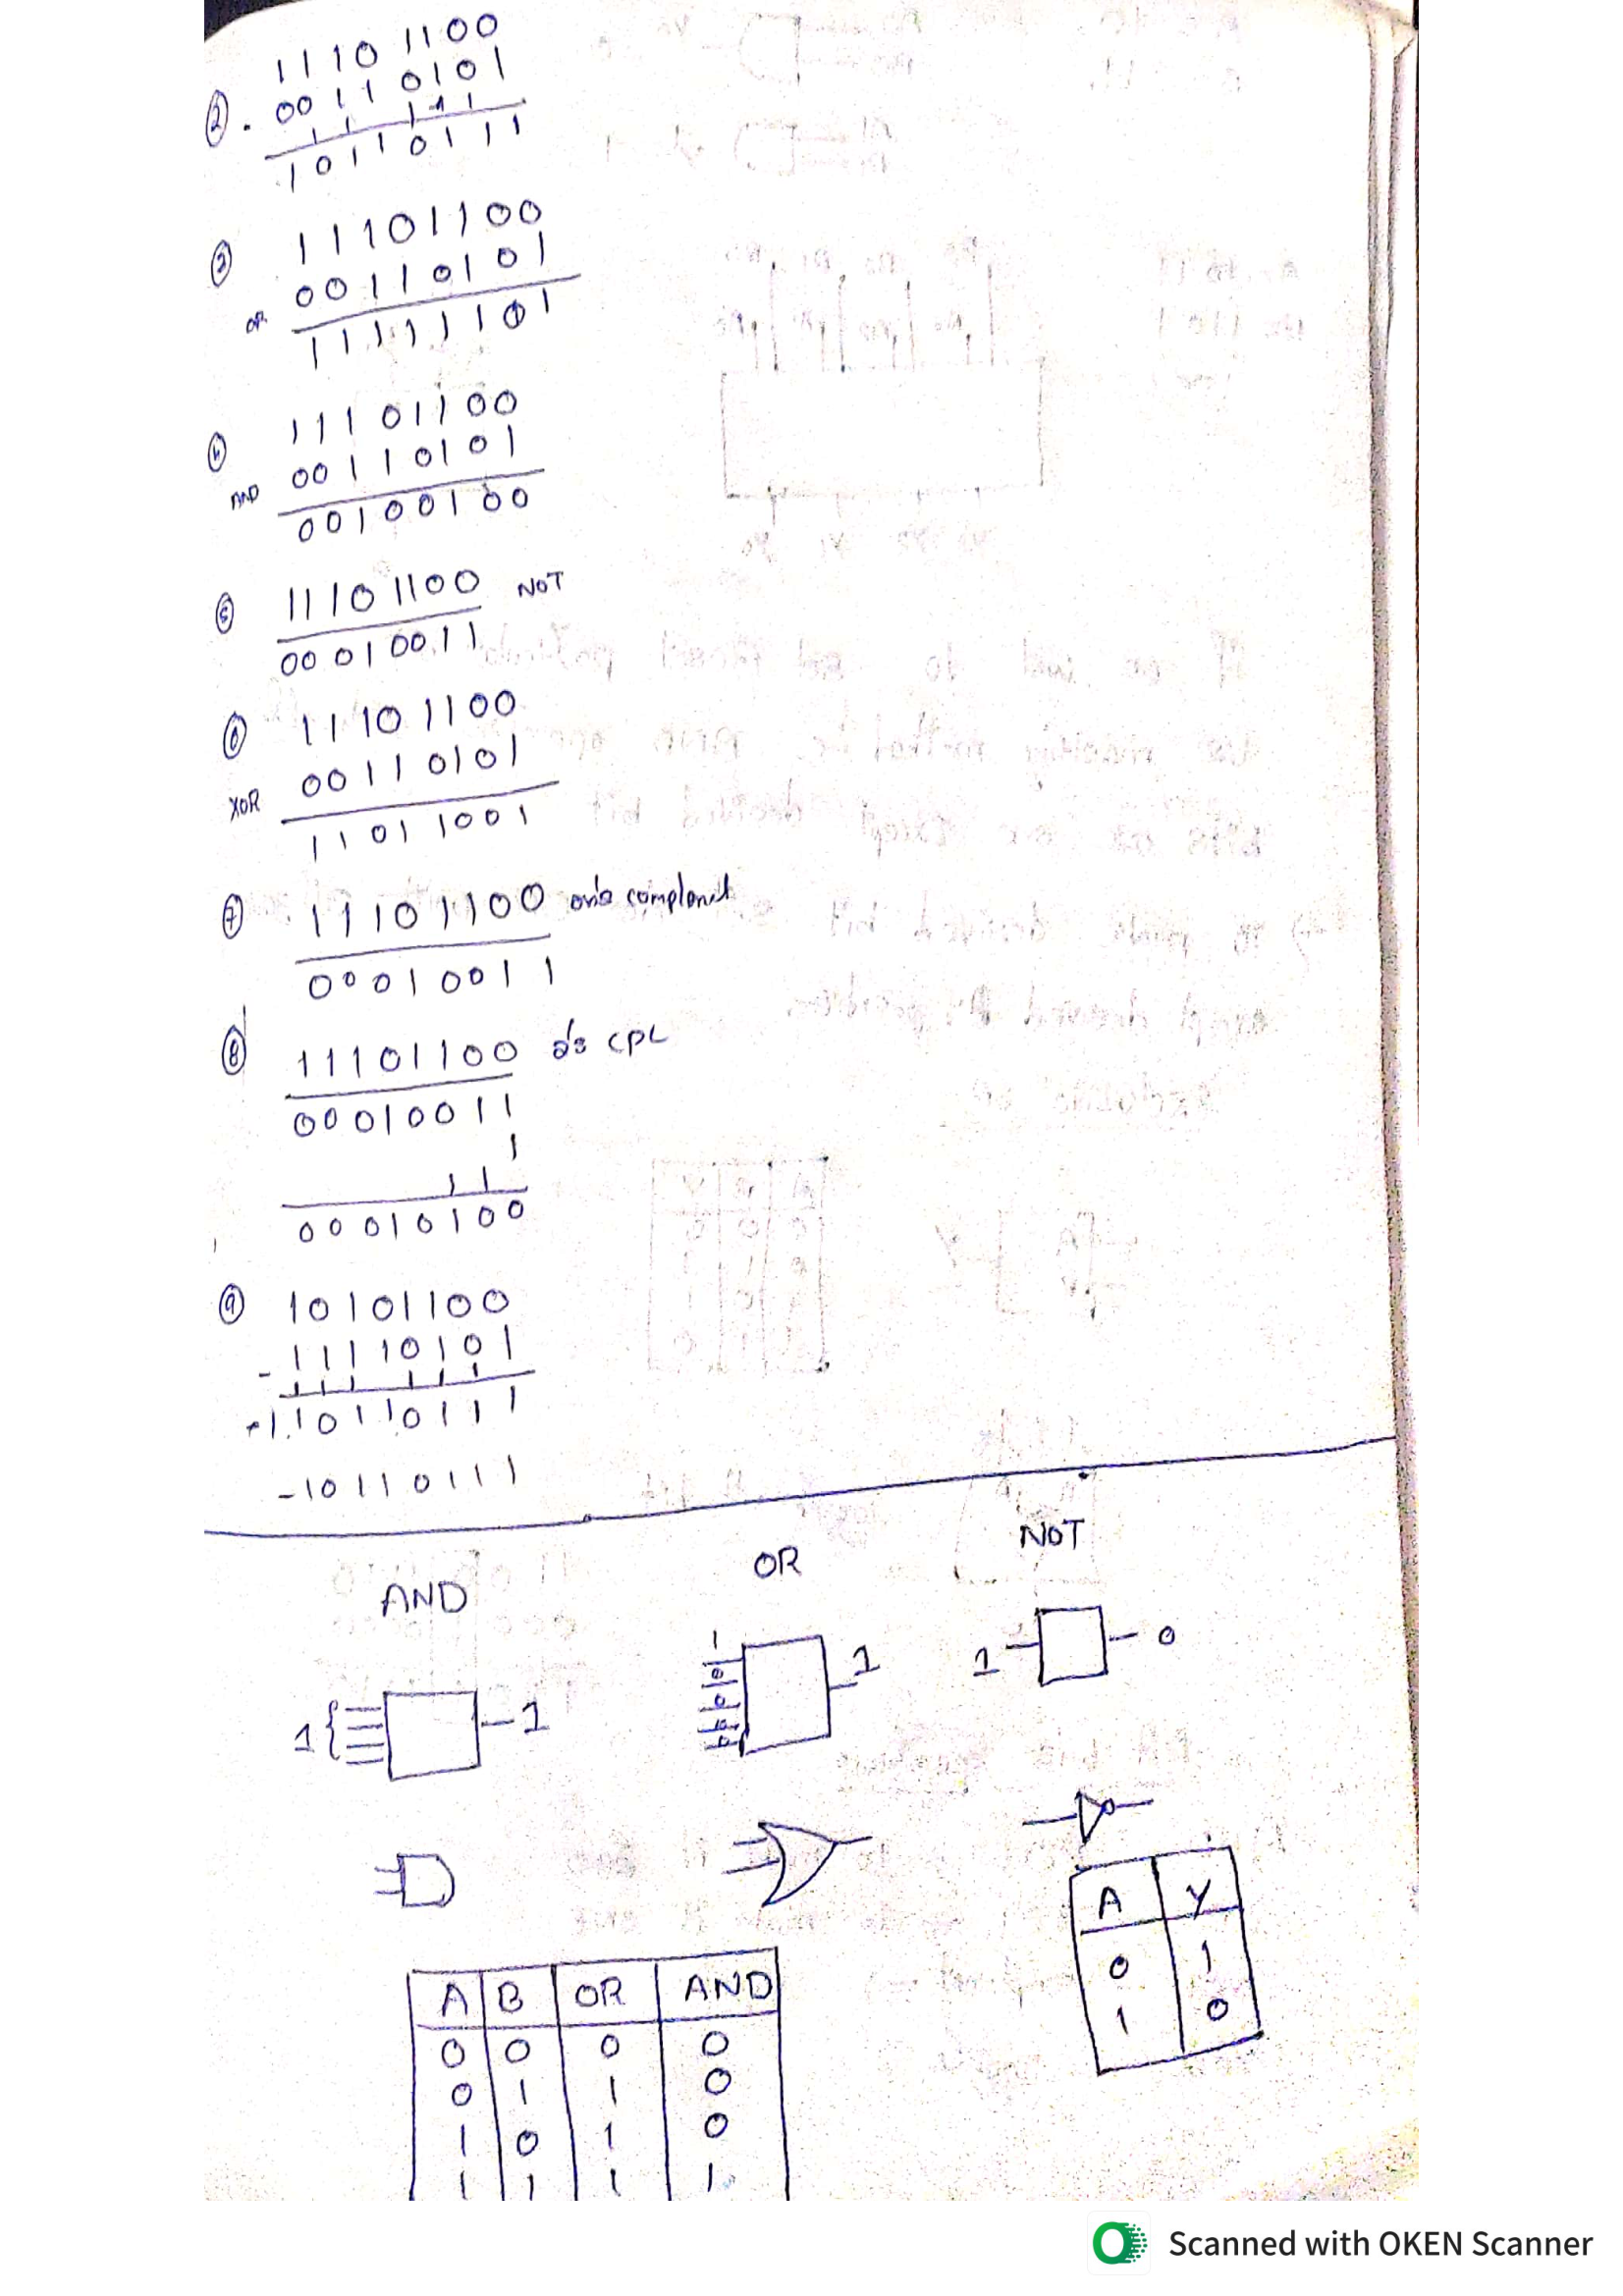 ② . 11101100
00110101
11 111
10110111
③ 11101100
OR 00110101
11111101
④ 11101100
AND 00110101
00100100
⑤ 11101100 NOT
00010011
⑥ 11101100
XOR 00110101
11011001
⑦ 11101100 one's complemet
00010011
⑧ 11101100 2's CPL
00010011
1
11
00010100
⑨ 10101100
- 11110101
111 111
-110110111
-10110111
AND OR NOT
1 1
1 0 1
1 0
A Y
0 1
1 0
A B OR AND
0 0 0 0
0 1 1 0
1 0 1 0
1 1 1 1
Scanned with OKEN Scanner